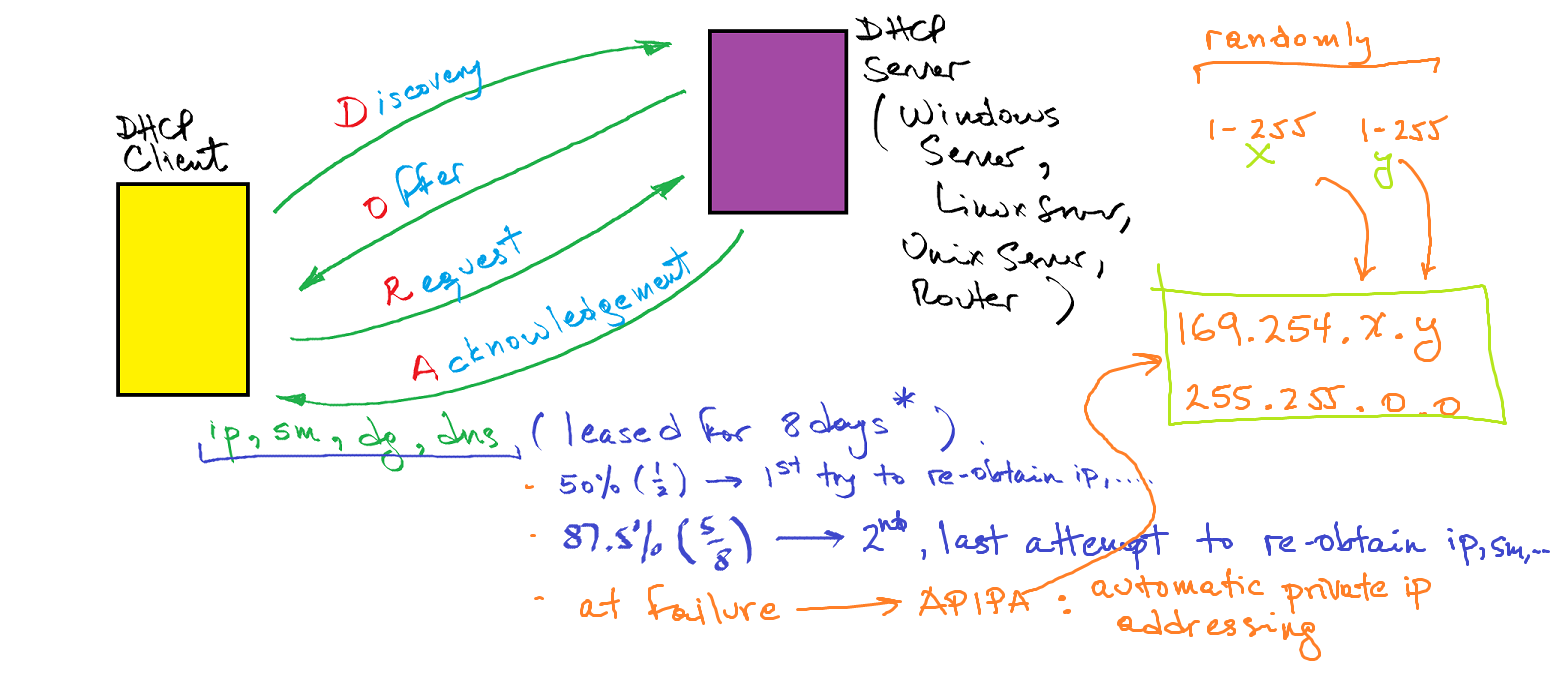 DHCP
Client
Discovery
Offer
Request
Acknowledgement
DHCP
Server
(Windows
Server,
Linux Server,
Unix Server,
Router)
randomly
1-255 1-255
x y
169.254.x.y
255.255.0.0
ip, sm, dg, dns, (leased for 8 days*).
- 50% (1/2) → 1st try to re-obtain ip,....
- 87.5% (5/8) → 2nd, last attempt to re-obtain ip, sm,...
- at failure → APIPA : automatic private ip
addressing